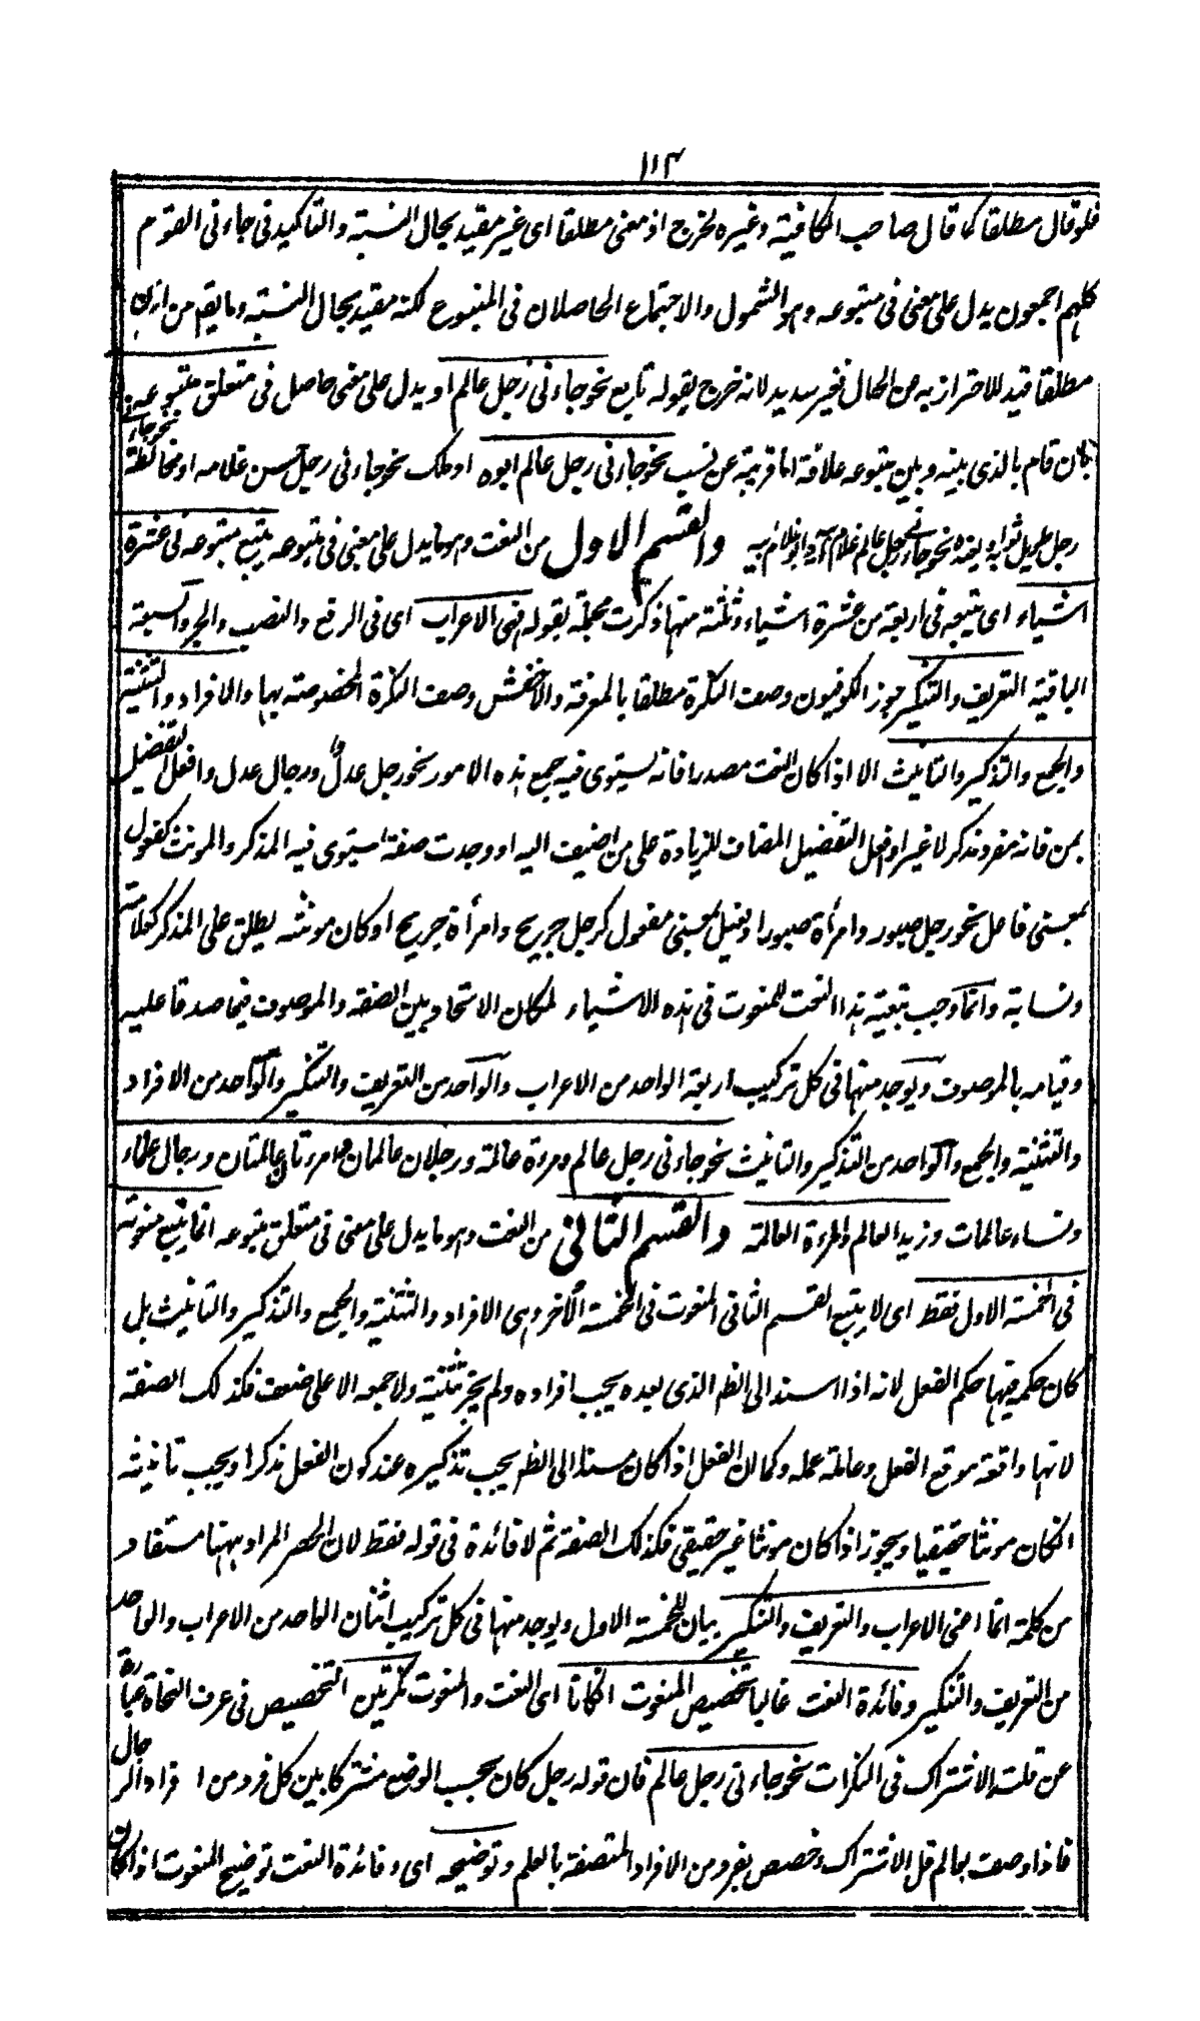 ١١٤
فلو قال مطلقا كما قال صاحب الكافية وغيره لخرج اذ معنى مطلقا اى غير مقيد بحال النسبة والتاكيد فى جاءنى القوم
كلهم اجمعون يدل على معنى فى متبوعه وهو الشمول والاجتماع الحاصلان فى المتبوع لكنه مقيد بحال النسبة وما يقم من ان
مطلقا قيد للاحتراز به عن الحال فغير سديد لانه خرج بقوله تابع نحو جاءنى رجل عالم او يدل على معنى حاصل فى متعلق متبوعه
بان قام بالذى بينه وبين متبوعه علاقة اما قريبة عن نسب نحو جاءنى رجل عالم ابوه او ملك نحو جاءنى رجل حسن غلامه او مخالطة نحو جاء
رجل طويل ثوبه او بعيدة نحو جاءنى رجل عالم غلام ابيه والقسم الاول من النعت وهو ما يدل على معنى فى متبوعه يتبع متبوعه فى عشرة
اشياء اى يتبعه فى اربعة من عشرة اشياء وثلثة منها ذكرت مجملة بقوله فى الاعراب اى فى الرفع والنصب والجر والسبعة
الباقية التعريف والتنكير جوز الكوفيون وصف النكرة مطلقا بالمعرفة والاخفش وصف النكرة المخصوصة بها والافراد والتثنية
والجمع والتذكير والتانيث الا اذا كان النعت مصدرا فانه يستوى فيه جميع هذه الامور نحو رجل عدل ورجال عدل وافعل التفضيل
بمن فانه مفرد مذكر لا غير او افعل التفضيل المضاف للزيادة على من اضيف اليه او وجدت صفة يستوى فيه المذكر والمونث كفعول
بمعنى فاعل نحو رجل صبور وامرأة صبور او فعيل بمعنى مفعول كرجل جريح وامرأة جريح او كان مونثه يطلق على المذكر كعلامة
ونسابة وانما وجب تبعية هذا النعت للمنعوت فى هذه الاشياء لمكان الاتحاد بين الصفة والموصوف فيما صدقا عليه
وقيامه بالموصوف ويوجد منها فى كل تركيب اربعة الواحد من الاعراب والواحد من التعريف والتنكير والواحد من الافراد
والتثنية والجمع والواحد من التذكير والتانيث نحو جاءنى رجل عالم ومرءة عالمة ورجلان عالمان وامرءتان عالمتان ورجال علماء
ونساء عالمات وزيد العالم والمرءة العالمة والقسم الثانى من النعت وهو ما يدل على معنى فى متعلق متبوعه انما يتبع منعوته
فى الخمسة الاول فقط اى لا يتبع القسم الثانى المنعوت فى الخمسة الأخر وهى الافراد والتثنية والجمع والتذكير والتانيث بل
كان حكمه فيها حكم الفعل لانه اذا اسند الى الظم الذى بعده يجب افراده ولم يجز تثنيته ولا جمعه الا على ضعف فكذلك الصفة
لانها واقعة موقع الفعل وعاملة عمله وكما ان الفعل اذا كان مسندا الى الظم يجب تذكيره عند كون الفعل مذكرا ويجب تانيثه
انكان مونثا حقيقيا ويجوز اذا كان مونثا غير حقيقى فكذلك الصفة ثم لا فائدة فى قوله فقط لان الحصر المراد ههنا مستفاد
من كلمة انما اعنى الاعراب والتعريف والتنكير بيان للخمسة الاول ويوجد منها فى كل تركيب اثنان الواحد من الاعراب والواحد
من التعريف والتنكير وفائدة النعت غالبا تخصيص المنعوت انكانا اى النعت والمنعوت نكرتين التخصيص فى عرف النحاة عبارة
عن قلة الاشتراك فى النكرات نحو جاءنى رجل عالم فان قوله رجل كان بحسب الوضع مشتركا بين كل فرد من افراد الرجال
فاذا وصف بعالم قل الاشتراك وخصص بفرد من الافراد المتصفة بالعلم وتوضيحه اى وفائدة النعت توضيح المنعوت اذا كان